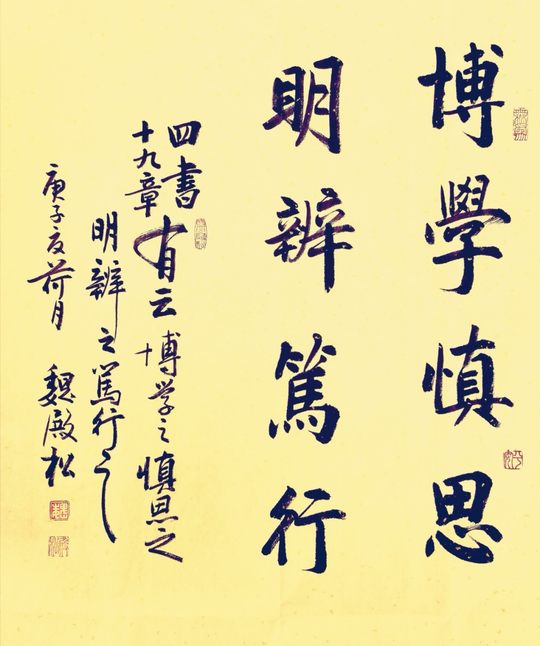 博學慎思
明辨篤行
四書
十九章
有云博学之慎思之
明辨之篤行之
庚子夏荷月
魏殿松